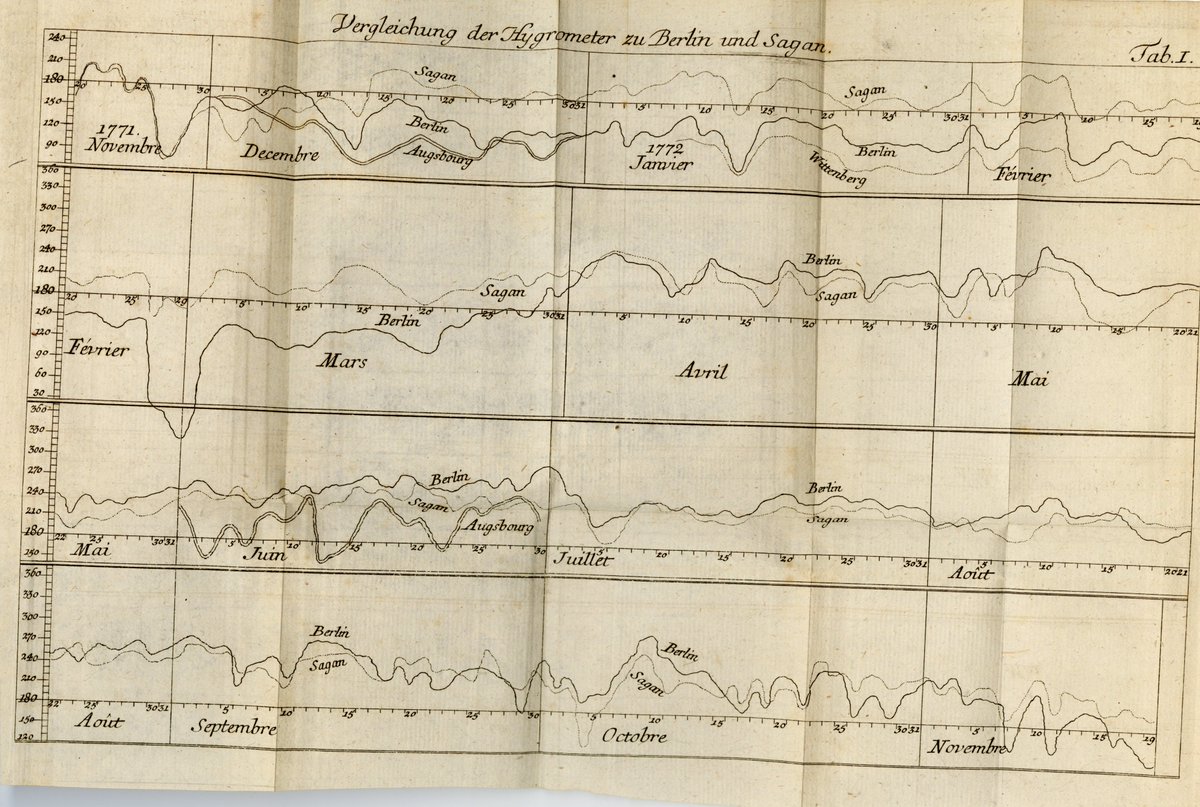 Vergleichung der Hygrometer zu Berlin und Sagan.
Tab. I.
240
210
180
150
120
90
20 25 30 5 10 15 20 25 30 31 5 10 15 20 25 30 31 5 10 15
Sagan
Berlin
Augsbourg
Sagan
Berlin
Wittenberg
1771.
Novembre
Decembre
1772
Janvier
Février
360
330
300
270
240
210
180
150
120
90
60
30
20 25 29 5 10 15 20 25 30 31 5 10 15 20 25 30 5 10 15 20 21
Sagan
Berlin
Berlin
Sagan
Février
Mars
Avril
Mai
360
330
300
270
240
210
180
150
22 25 30 31 5 10 15 20 25 30 5 10 15 20 25 30 31 5 10 15 20 21
Berlin
Sagan
Augsbourg
Berlin
Sagan
Mai
Juin
Juillet
Août
360
330
300
270
240
210
180
150
120
22 25 30 31 5 10 15 20 25 30 5 10 15 20 25 30 31 5 10 15 19
Berlin
Sagan
Berlin
Sagan
Août
Septembre
Octobre
Novembre